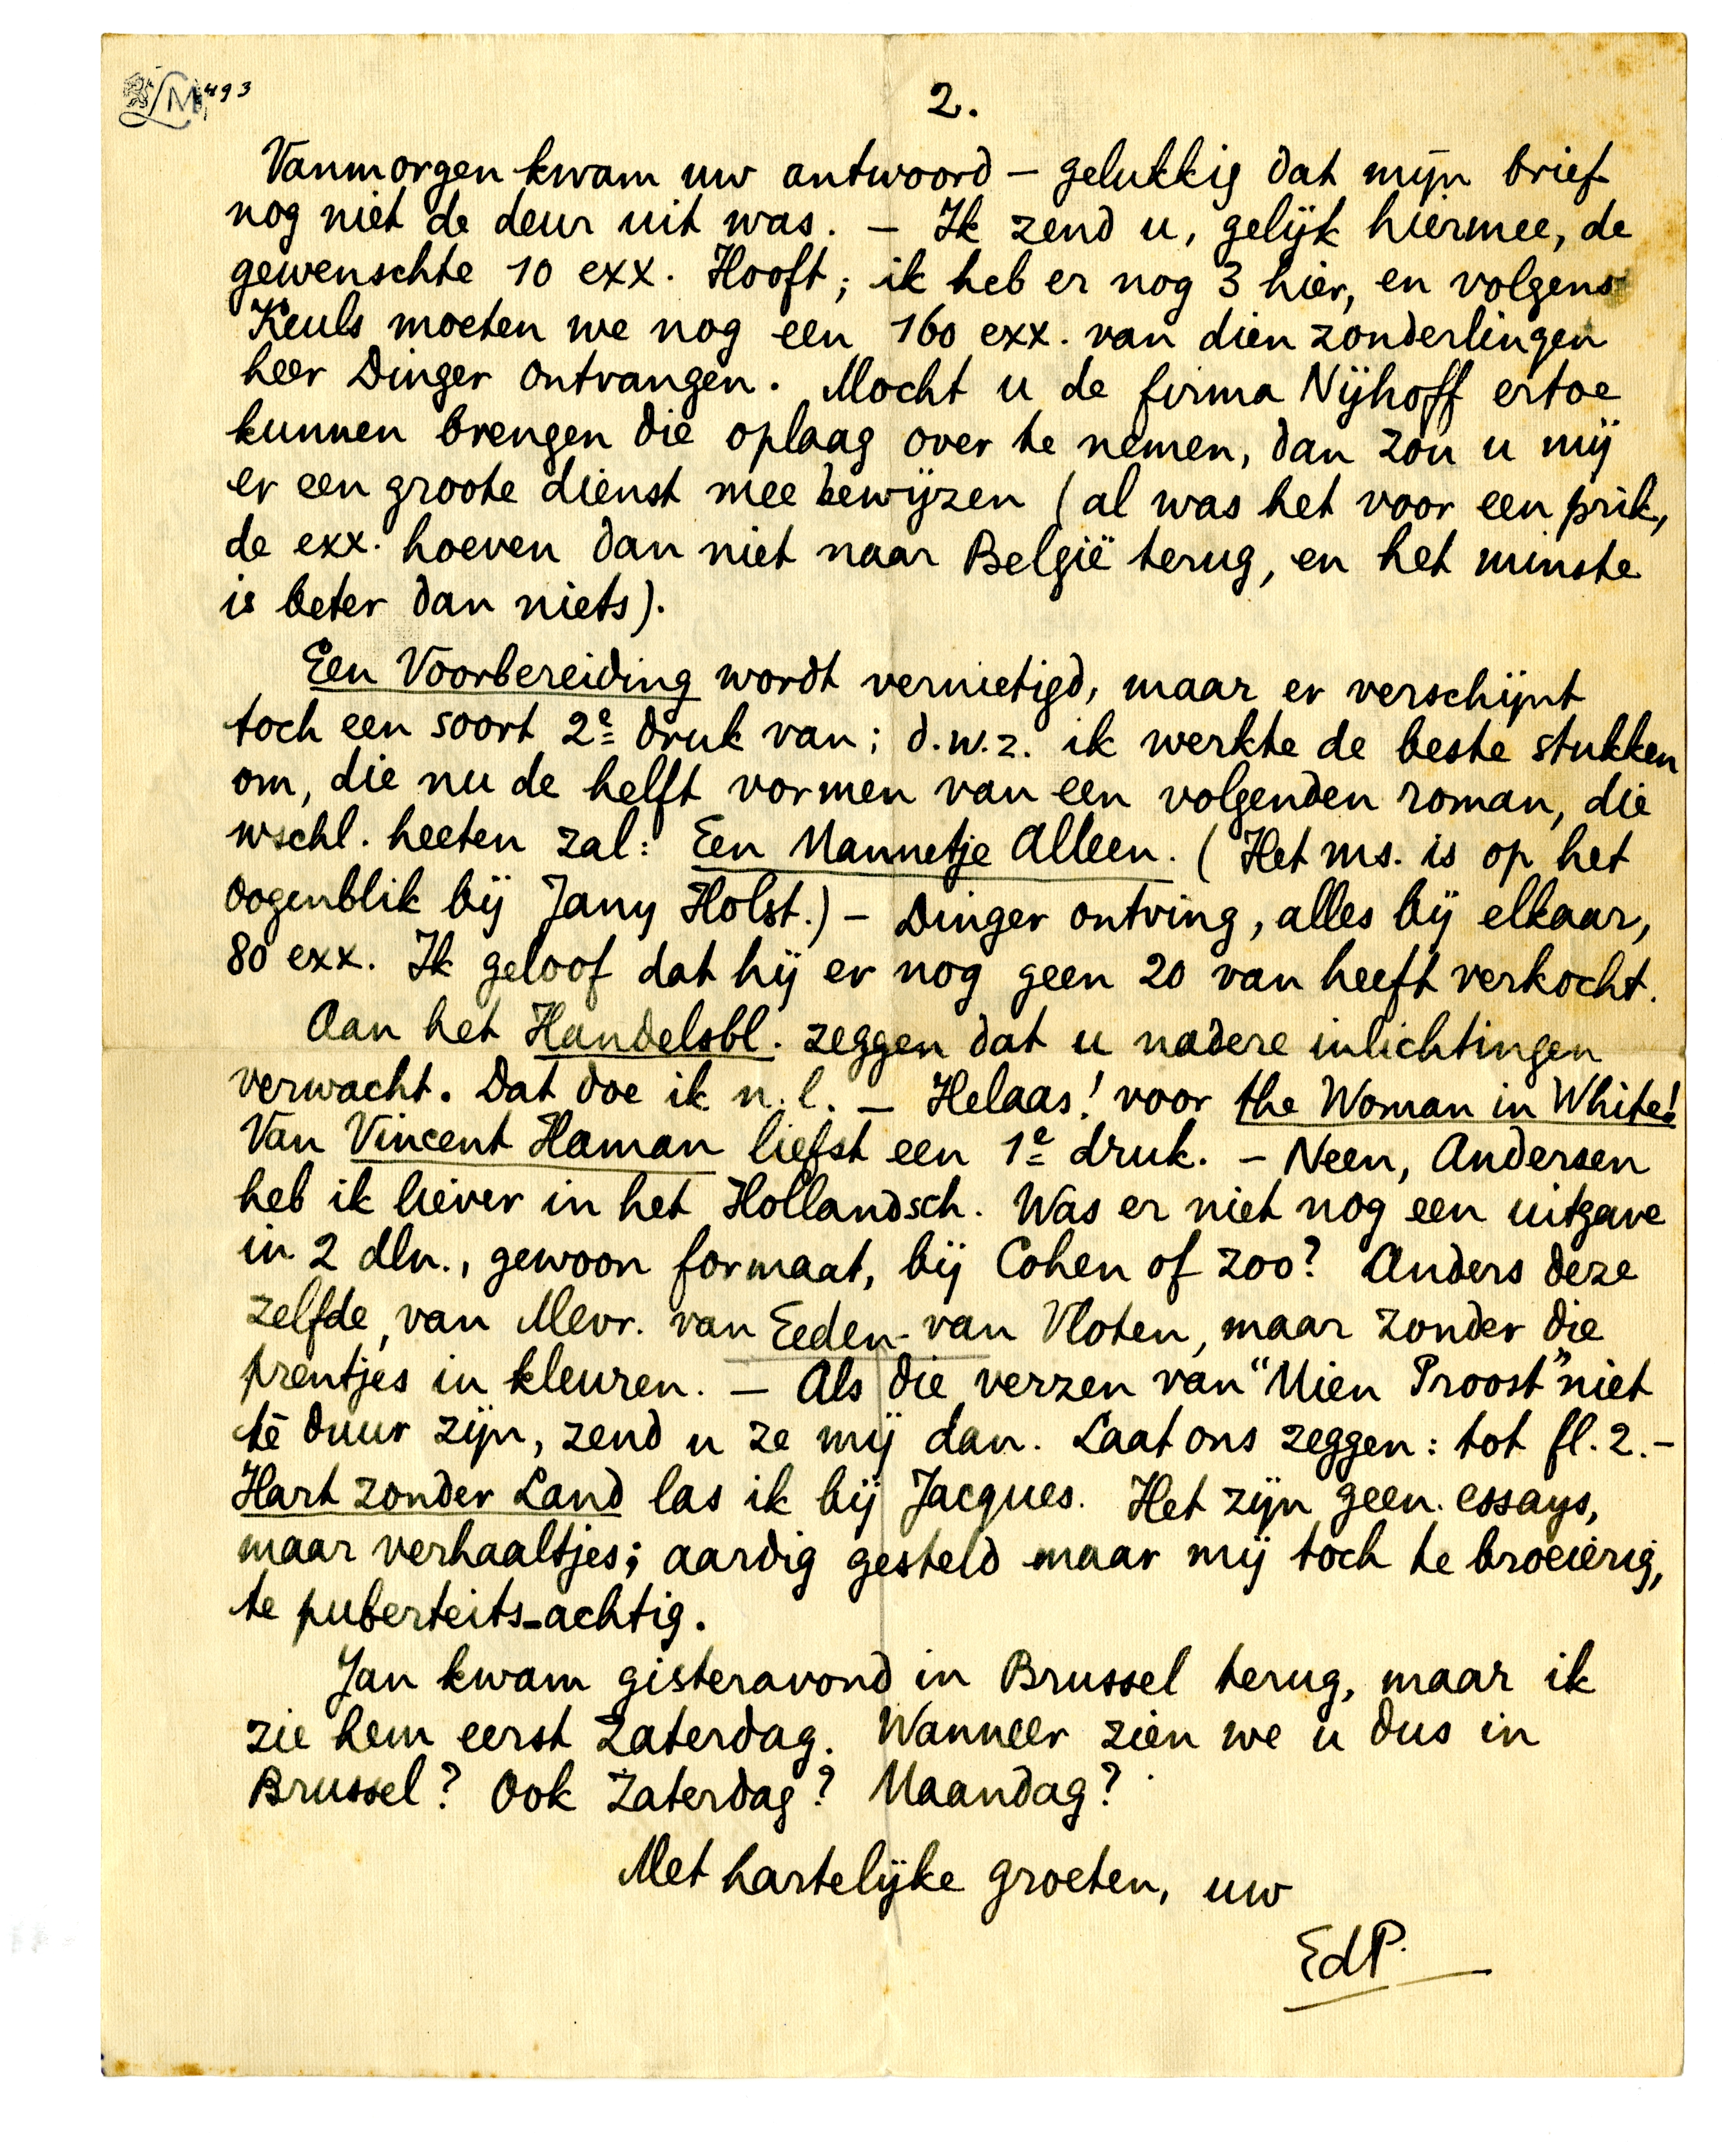 LM 493
2.
Vanmorgen kwam uw antwoord — gelukkig dat mijn brief
nog niet de deur uit was. — Ik zend u, gelijk hiermee, de
gewenschte 10 exx. Hooft; ik heb er nog 3 hier, en volgens
Keuls moeten we nog een 160 exx. van dien zonderlingen
heer Dinger ontvangen. Mocht u de firma Nijhoff ertoe
kunnen brengen die oplaag over te nemen, dan zou u mij
er een groote dienst mee bewijzen (al was het voor een prik,
de exx. hoeven dan niet naar België terug, en het minste
is beter dan niets).
Een Voorbereiding wordt vernietigd, maar er verschijnt
toch een soort 2e druk van; d.w.z. ik werkte de beste stukken
om, die nu de helft vormen van een volgenden roman, die
wschl. heeten zal: Een Mannetje Alleen. (Het ms. is op het
oogenblik bij Jany Holst.) — Dinger ontving, alles bij elkaar,
80 exx. Ik geloof dat hij er nog geen 20 van heeft verkocht.
Aan het Handelsbl. zeggen dat u nadere inlichtingen
verwacht. Dat doe ik n.l. — Helaas! voor the Woman in White!
Van Vincent Haman liefst een 1e druk. — Neen, Andersen
heb ik liever in het Hollandsch. Was er niet nog een uitgave
in 2 dln., gewoon formaat, bij Cohen of zoo? Anders deze
zelfde, van Mevr. van Eeden-van Vloten, maar zonder die
prentjes in kleuren. — Als die verzen van "Mien Proost" niet
té duur zijn, zend u ze mij dan. Laat ons zeggen: tot fl. 2.—
Hart zonder Land las ik bij Jacques. Het zijn geen essays,
maar verhaaltjes; aardig gesteld maar mij toch te broeierig,
te puberteits-achtig.
Jan kwam gisteravond in Brussel terug, maar ik
zie hem eerst Zaterdag. Wanneer zien we u dus in
Brussel? Ook Zaterdag? Maandag?
Met hartelijke groeten, uw
EdP.